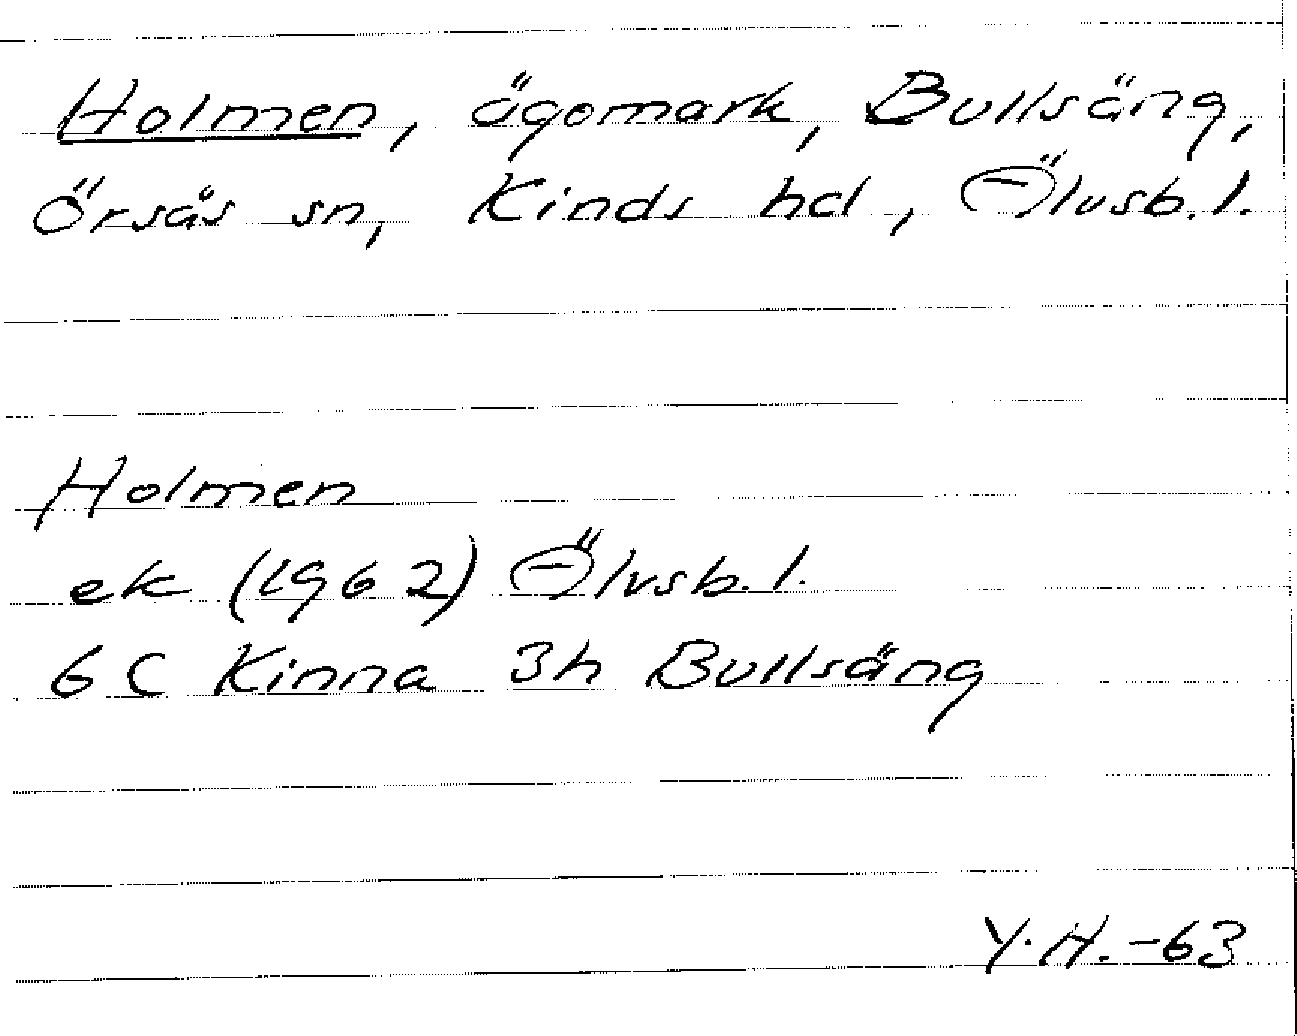 Holmen, ägomark, Bullsäng,
Örsås sn, Kinds hd, Älvsb. l.
Holmen
ek (1962) Älvsb. l.
6 C Kinna 3h Bullsäng
Y.H. -63